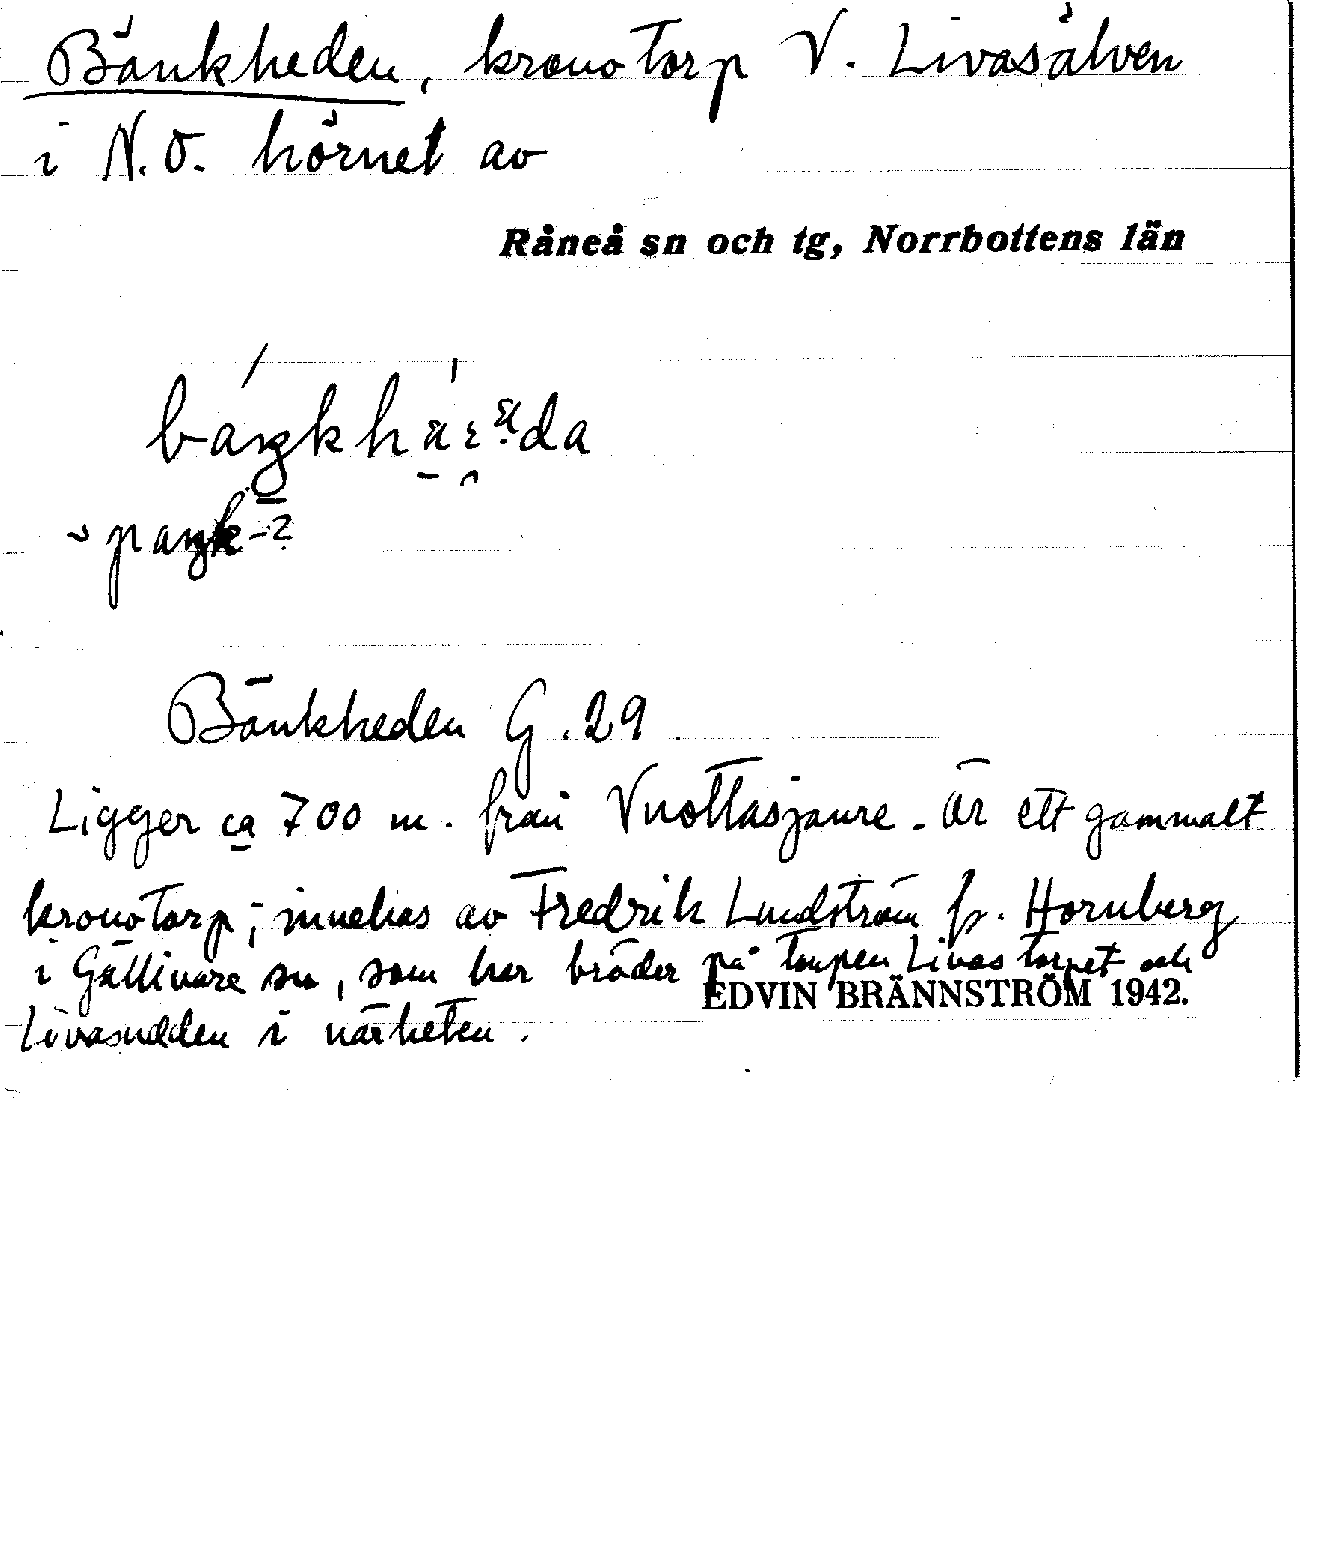 Bänkheden, kronotorp V. Livasälven
i N.O. hörnet av
Råneå sn och tg, Norrbottens län
báŋkhä̀ɛda
paŋk-?
Bänkheden G. 29
Ligger ca 700 m. från Vuottasjaure. Är ett gammalt
kronotorp; innehas av Fredrik Lundström fr. Hornberg
i Gällivare sn, som har bröder på torpen Livastorpet och
EDVIN BRÄNNSTRÖM 1942.
Livasudden i närheten.